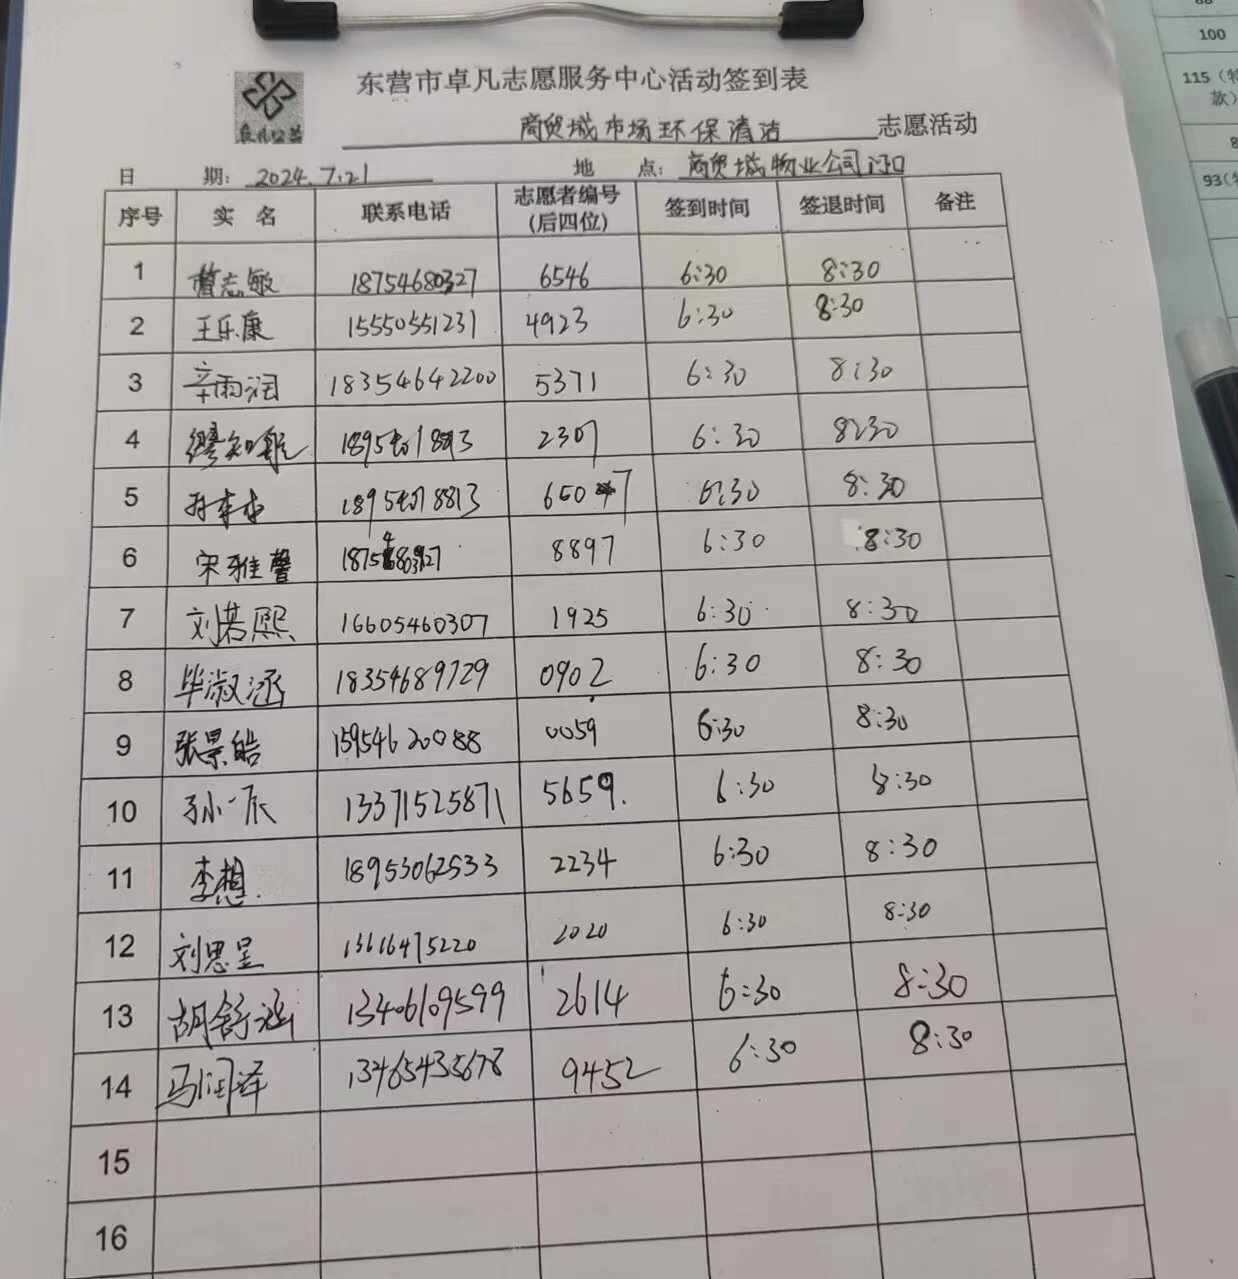 东营市卓凡志愿服务中心活动签到表
卓凡公益
商贸城市场环保清洁 志愿活动
日 期: 2024.7.21 地 点: 商贸城物业公司门口
序号 实 名 联系电话 志愿者编号(后四位) 签到时间 签退时间 备注
1 志敏 18754680327 6546 6:30 8:30
2 王乐康 15550551231 4923 6:30 8:30
3 辛雨润 18354642200 5371 6:30 8:30
4 缪知 2307 6:30 8:30
5 18954018813 6507 6:30 8:30
6 宋雅馨 8897 6:30 8:30
7 刘若熙 16605460307 1925 6:30 8:30
8 毕淑涵 18354689729 0902 6:30 8:30
9 张景皓 15954620088 0059 6:30 8:30
10 孙一辰 13371525871 5659. 6:30 8:30
11 李想. 18953062533 2234 6:30 8:30
12 刘思呈 13616475220 2020 6:30 8:30
13 胡舒涵 13406109599 2614 6:30 8:30
14 马润泽 13465435678 9452 6:30 8:30
15
16
100
115（特
款）
93(特